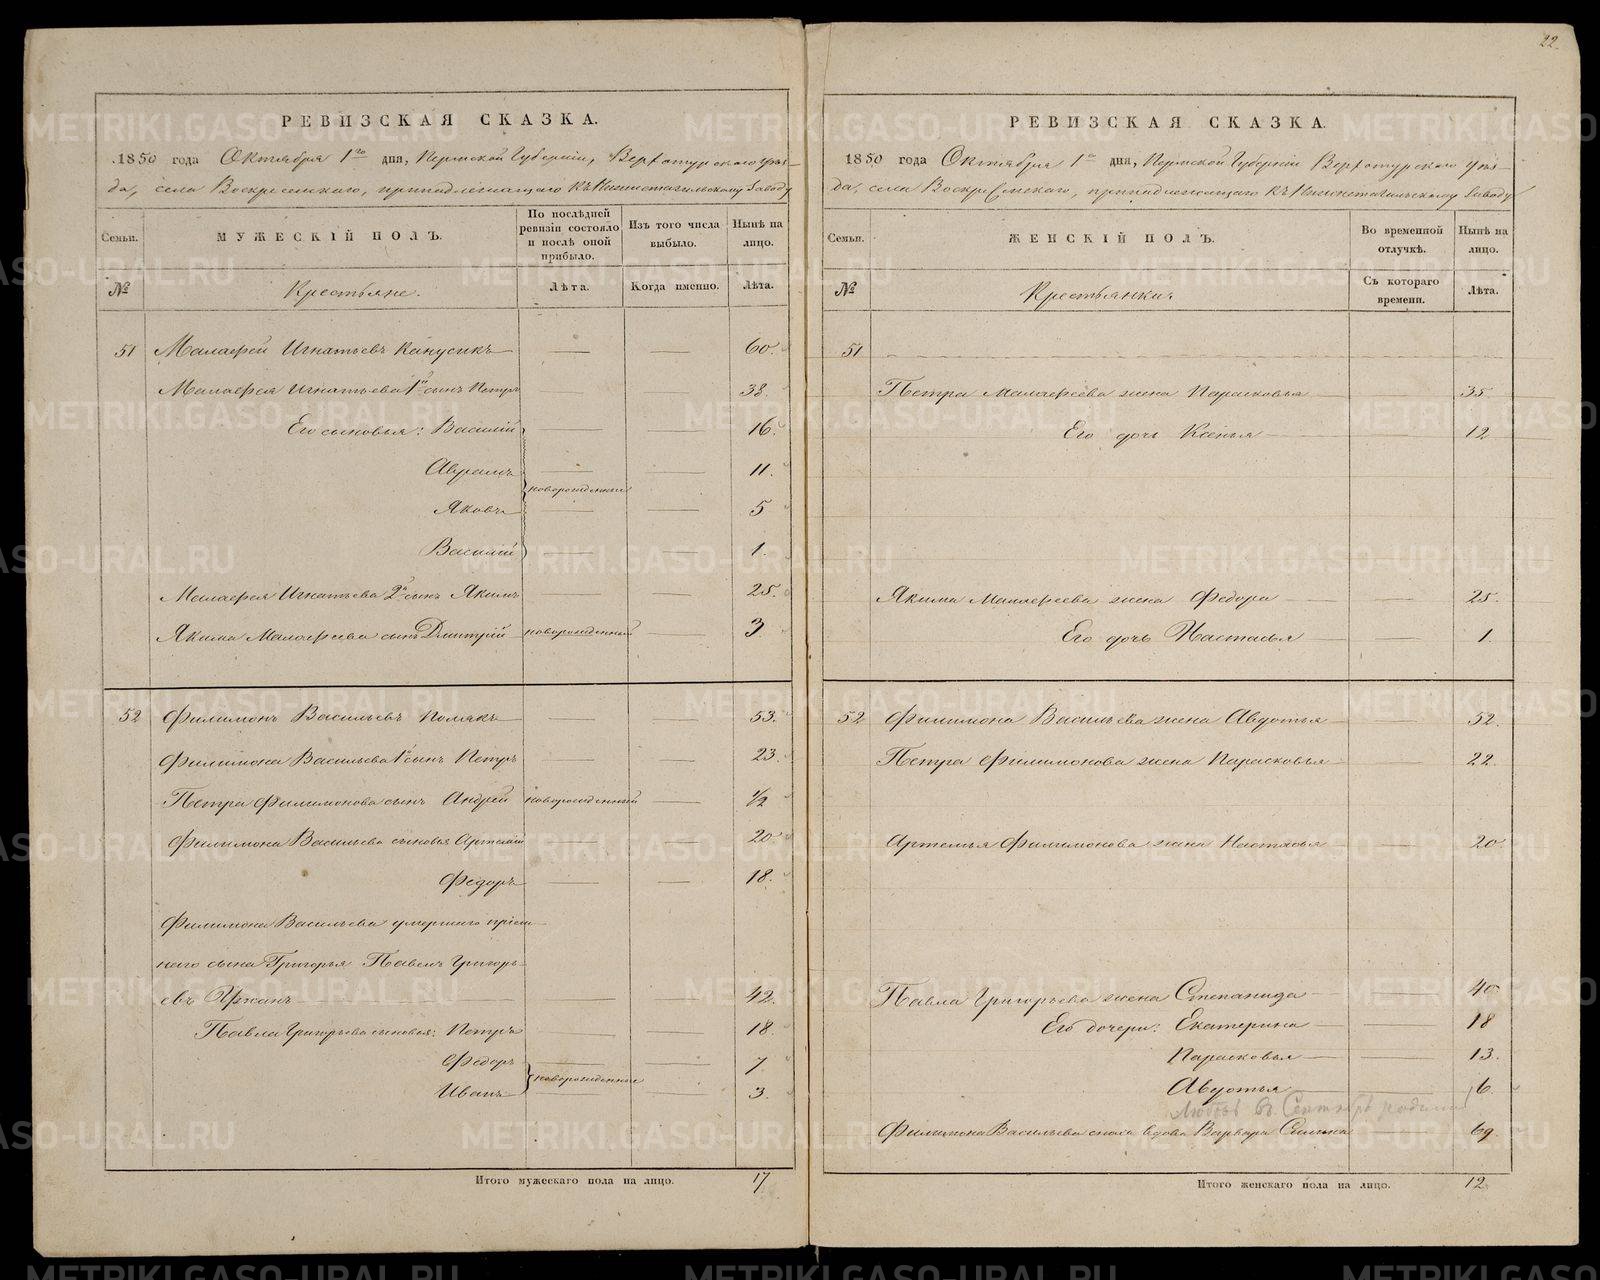 22.
РЕВИЗСКАЯ СКАЗКА.
1850 года Октября 1го дня, Пермской Губернии, Верхотурскаго уѣз-
да, села Воскресенскаго, принадлежащаго къ Нижнетагильскому Заводу
Семьи.
МУЖЕСКІЙ ПОЛЪ.
По послѣдней ревизіи состояло и послѣ оной прибыло.
Изъ того числа выбыло.
Нынѣ на лицо.
№
Крестьяне.
Лѣта.
Когда именно.
Лѣта.
51 Малафей Игнатьевъ 60.
Малафея Игнатьева 1й сынъ Петръ 38.
Его сыновья: Василій 16.
Авраамъ 11.
новорожденные
Яковъ 5
Василій 1.
Малафея Игнатьева 2й сынъ Якимъ 25.
Якима Малафеева сынъ Дмитрій новорожденный 3
52 Филимонъ Васильевъ Полякъ 53.
Филимона Васильева 1й сынъ Петръ 23.
Петра Филимонова сынъ Андрей новорожденный 1/2
Филимона Васильева сыновья Артемій 20
Федоръ 18.
Филимона Васильева умершаго пріем-
наго сына Григорья Павелъ Григорь-
евъ 42.
Павла Григорьева сыновья: Петръ 18.
Федоръ 7.
новорожденные
Иванъ 3.
Итого мужескаго пола на лицо. 17
РЕВИЗСКАЯ СКАЗКА.
1850 года Октября 1го дня, Пермской Губерніи Верхотурскаго уѣз-
да, села Воскресенскаго, принадлежащаго къ Нижнетагильскому Заводу
Семьи.
ЖЕНСКІЙ ПОЛЪ.
Во временной отлучкѣ.
Нынѣ на лицо.
№
Крестьянки.
Съ котораго времени.
Лѣта.
51
Петра Малафеева жена Парасковья 35.
Его дочь Ксенья 12
Якима Малафеева жена Федора 25.
Его дочь Настасья 1.
52 Филимона Васильева жена Авдотья 52.
Петра Филимонова жена Парасковья 22.
Артемья Филимонова жена Настасья 20
Павла Григорьева жена Степанида 40
Его дочери: Екатерина 18
Парасковья 13.
Авдотья 6.
Любовь въ Сентябрѣ
Филимона Васильева сноха вдова Варвара 69.
Итого женскаго пола на лицо. 12
METRIKI.GASO-URAL.RU